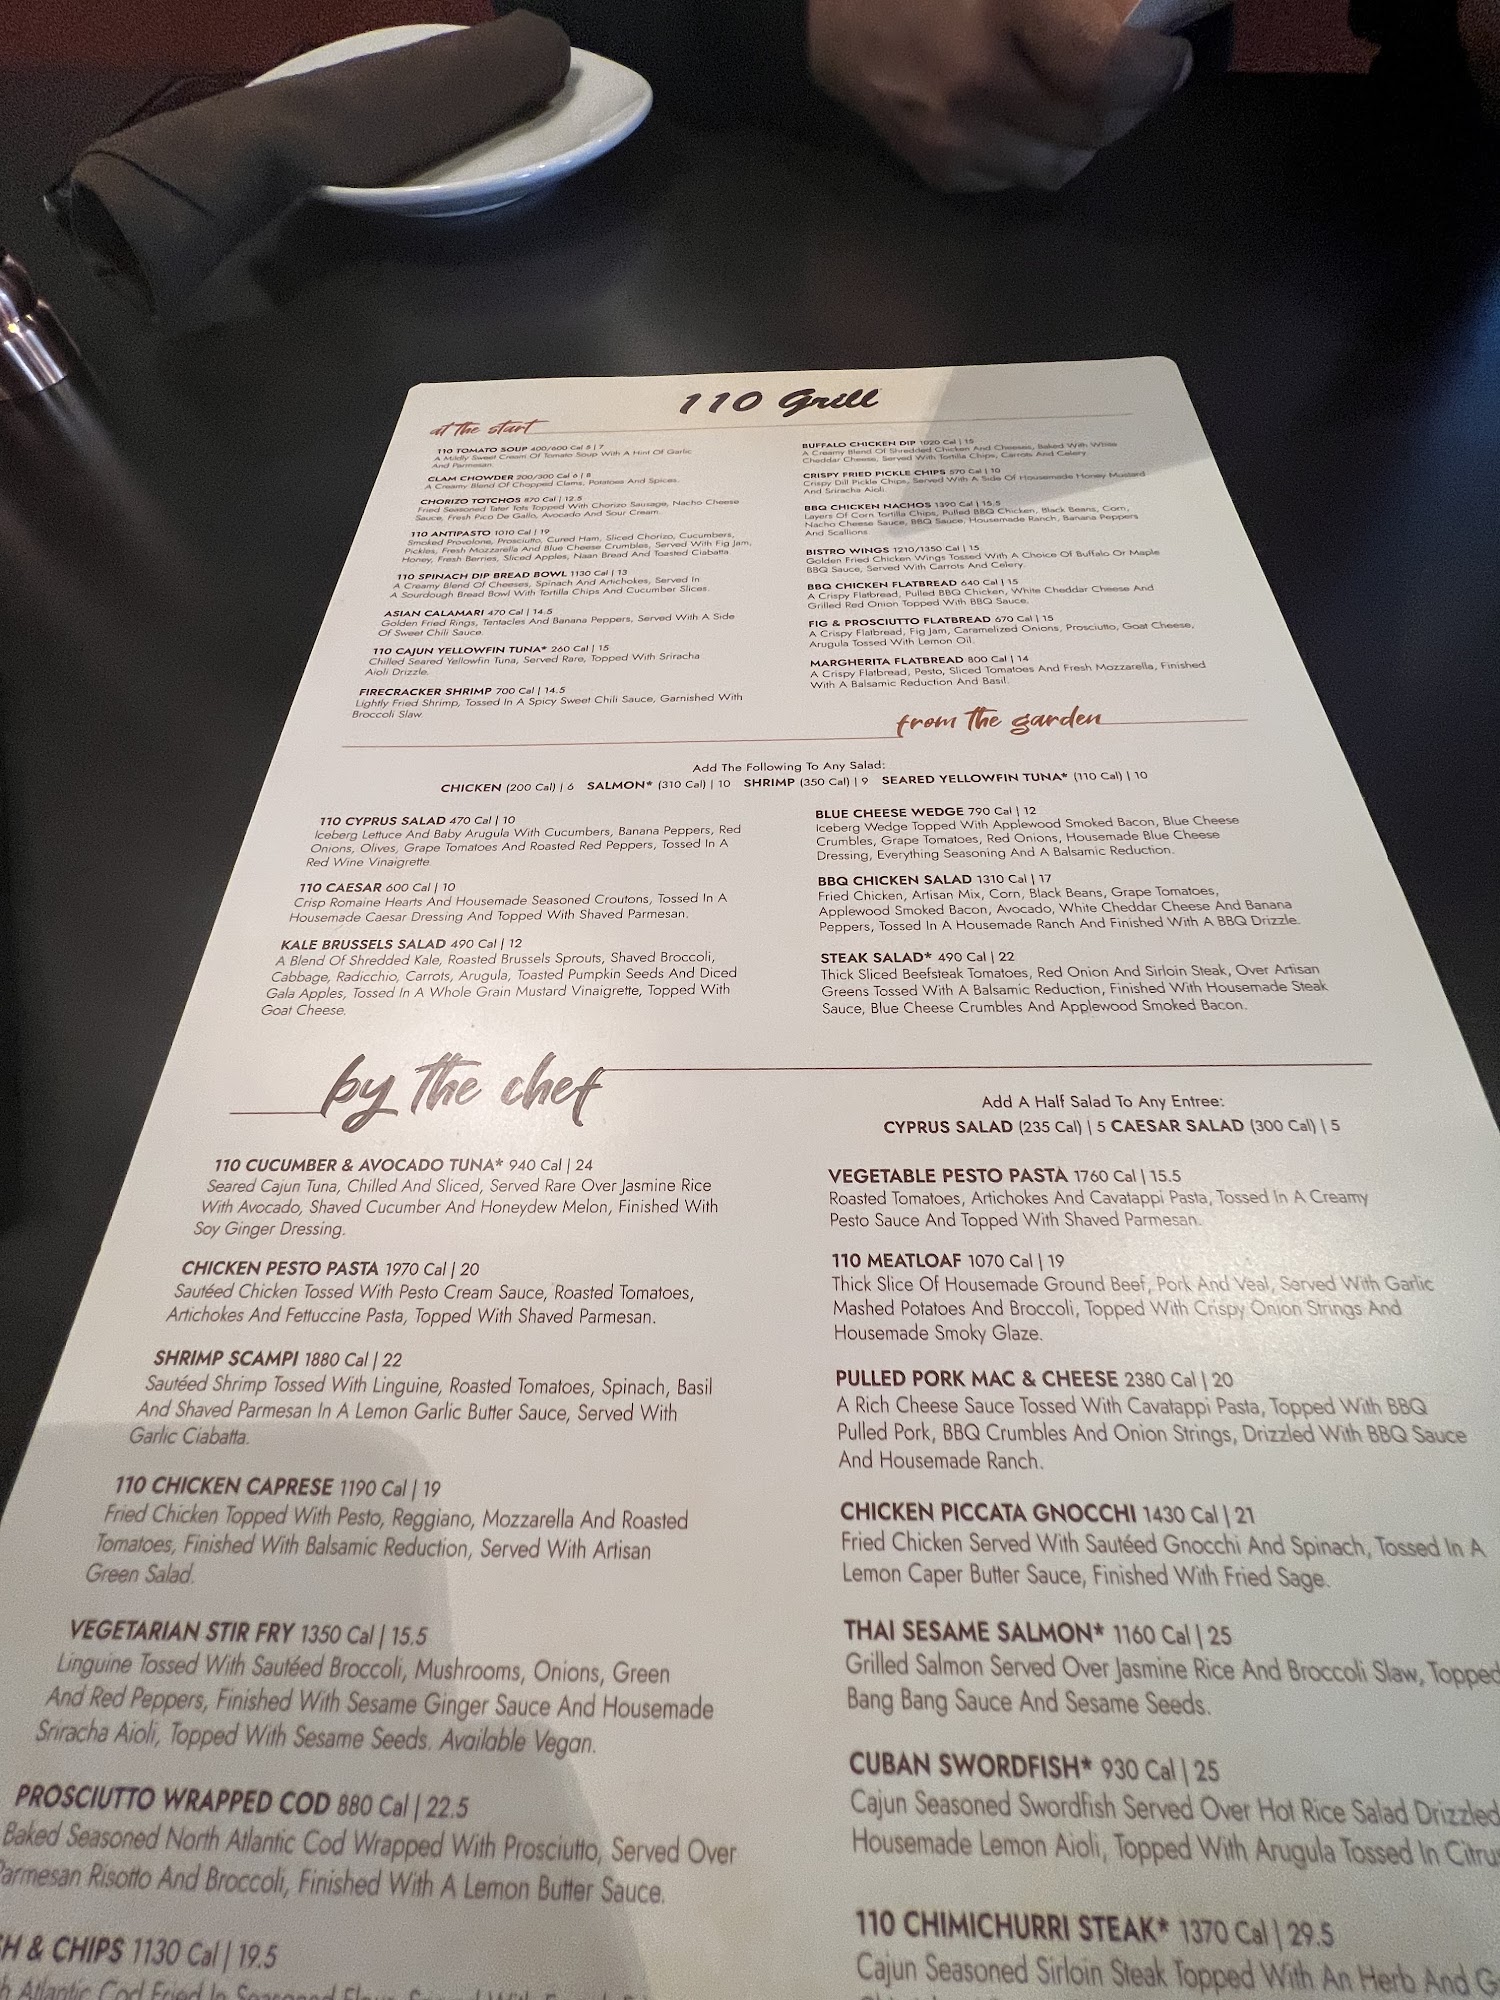 110 Grill
at the start
110 TOMATO SOUP 400/600 Cal 5 | 7
A Mildly Sweet Cream Of Tomato Soup With A Hint Of Garlic
And Parmesan.
CLAM CHOWDER 200/300 Cal 6 | 8
A Creamy Blend Of Chopped Clams, Potatoes And Spices.
CHORIZO TOTCHOS 870 Cal | 12.5
Fried Seasoned Tater Tots Topped With Chorizo Sausage, Nacho Cheese
Sauce, Fresh Pico De Gallo, Avocado And Sour Cream.
110 ANTIPASTO 1010 Cal | 19
Smoked Provolone, Prosciutto, Cured Ham, Sliced Chorizo, Cucumbers,
Pickles, Fresh Mozzarella And Blue Cheese Crumbles, Served With Fig Jam,
Honey, Fresh Berries, Sliced Apples, Naan Bread And Toasted Ciabatta.
110 SPINACH DIP BREAD BOWL 1130 Cal | 13
A Creamy Blend Of Cheeses, Spinach And Artichokes, Served In
A Sourdough Bread Bowl With Tortilla Chips And Cucumber Slices.
ASIAN CALAMARI 470 Cal | 14.5
Golden Fried Rings, Tentacles And Banana Peppers, Served With A Side
Of Sweet Chili Sauce.
110 CAJUN YELLOWFIN TUNA* 260 Cal | 15
Chilled Seared Yellowfin Tuna, Served Rare, Topped With Sriracha
Aioli Drizzle.
FIRECRACKER SHRIMP 700 Cal | 14.5
Lightly Fried Shrimp, Tossed In A Spicy Sweet Chili Sauce, Garnished With
Broccoli Slaw.
BUFFALO CHICKEN DIP 1020 Cal | 15
A Creamy Blend Of Shredded Chicken And Cheeses, Baked With White
Cheddar Cheese, Served With Tortilla Chips, Carrots And Celery.
CRISPY FRIED PICKLE CHIPS 570 Cal | 10
Crispy Dill Pickle Chips, Served With A Side Of Housemade Honey Mustard
And Sriracha Aioli.
BBQ CHICKEN NACHOS 1390 Cal | 15.5
Layers Of Corn Tortilla Chips, Pulled BBQ Chicken, Black Beans, Corn,
Nacho Cheese Sauce, BBQ Sauce, Housemade Ranch, Banana Peppers
And Scallions.
BISTRO WINGS 1210/1350 Cal | 15
Golden Fried Chicken Wings Tossed With A Choice Of Buffalo Or Maple
BBQ Sauce, Served With Carrots And Celery.
BBQ CHICKEN FLATBREAD 640 Cal | 15
A Crispy Flatbread, Pulled BBQ Chicken, White Cheddar Cheese And
Grilled Red Onion Topped With BBQ Sauce.
FIG & PROSCIUTTO FLATBREAD 670 Cal | 15
A Crispy Flatbread, Fig Jam, Caramelized Onions, Prosciutto, Goat Cheese,
Arugula Tossed With Lemon Oil.
MARGHERITA FLATBREAD 800 Cal | 14
A Crispy Flatbread, Pesto, Sliced Tomatoes And Fresh Mozzarella, Finished
With A Balsamic Reduction And Basil.
from the garden
Add The Following To Any Salad:
CHICKEN (200 Cal) | 6 SALMON* (310 Cal) | 10 SHRIMP (350 Cal) | 9 SEARED YELLOWFIN TUNA* (110 Cal) | 10
110 CYPRUS SALAD 470 Cal | 10
Iceberg Lettuce And Baby Arugula With Cucumbers, Banana Peppers, Red
Onions, Olives, Grape Tomatoes And Roasted Red Peppers, Tossed In A
Red Wine Vinaigrette.
110 CAESAR 600 Cal | 10
Crisp Romaine Hearts And Housemade Seasoned Croutons, Tossed In A
Housemade Caesar Dressing And Topped With Shaved Parmesan.
KALE BRUSSELS SALAD 490 Cal | 12
A Blend Of Shredded Kale, Roasted Brussels Sprouts, Shaved Broccoli,
Cabbage, Radicchio, Carrots, Arugula, Toasted Pumpkin Seeds And Diced
Gala Apples, Tossed In A Whole Grain Mustard Vinaigrette, Topped With
Goat Cheese.
BLUE CHEESE WEDGE 790 Cal | 12
Iceberg Wedge Topped With Applewood Smoked Bacon, Blue Cheese
Crumbles, Grape Tomatoes, Red Onions, Housemade Blue Cheese
Dressing, Everything Seasoning And A Balsamic Reduction.
BBQ CHICKEN SALAD 1310 Cal | 17
Fried Chicken, Artisan Mix, Corn, Black Beans, Grape Tomatoes,
Applewood Smoked Bacon, Avocado, White Cheddar Cheese And Banana
Peppers, Tossed In A Housemade Ranch And Finished With A BBQ Drizzle.
STEAK SALAD* 490 Cal | 22
Thick Sliced Beefsteak Tomatoes, Red Onion And Sirloin Steak, Over Artisan
Greens Tossed With A Balsamic Reduction, Finished With Housemade Steak
Sauce, Blue Cheese Crumbles And Applewood Smoked Bacon.
by the chef
Add A Half Salad To Any Entree:
CYPRUS SALAD (235 Cal) | 5 CAESAR SALAD (300 Cal) | 5
110 CUCUMBER & AVOCADO TUNA* 940 Cal | 24
Seared Cajun Tuna, Chilled And Sliced, Served Rare Over Jasmine Rice
With Avocado, Shaved Cucumber And Honeydew Melon, Finished With
Soy Ginger Dressing.
CHICKEN PESTO PASTA 1970 Cal | 20
Sautéed Chicken Tossed With Pesto Cream Sauce, Roasted Tomatoes,
Artichokes And Fettuccine Pasta, Topped With Shaved Parmesan.
SHRIMP SCAMPI 1880 Cal | 22
Sautéed Shrimp Tossed With Linguine, Roasted Tomatoes, Spinach, Basil
And Shaved Parmesan In A Lemon Garlic Butter Sauce, Served With
Garlic Ciabatta.
110 CHICKEN CAPRESE 1190 Cal | 19
Fried Chicken Topped With Pesto, Reggiano, Mozzarella And Roasted
Tomatoes, Finished With Balsamic Reduction, Served With Artisan
Green Salad.
VEGETARIAN STIR FRY 1350 Cal | 15.5
Linguine Tossed With Sautéed Broccoli, Mushrooms, Onions, Green
And Red Peppers, Finished With Sesame Ginger Sauce And Housemade
Sriracha Aioli, Topped With Sesame Seeds. Available Vegan.
PROSCIUTTO WRAPPED COD 880 Cal | 22.5
Baked Seasoned North Atlantic Cod Wrapped With Prosciutto, Served Over
Parmesan Risotto And Broccoli, Finished With A Lemon Butter Sauce.
H & CHIPS 1130 Cal | 19.5
Atlantic Cod Fried In Seasoned
VEGETABLE PESTO PASTA 1760 Cal | 15.5
Roasted Tomatoes, Artichokes And Cavatappi Pasta, Tossed In A Creamy
Pesto Sauce And Topped With Shaved Parmesan.
110 MEATLOAF 1070 Cal | 19
Thick Slice Of Housemade Ground Beef, Pork And Veal, Served With Garlic
Mashed Potatoes And Broccoli, Topped With Crispy Onion Strings And
Housemade Smoky Glaze.
PULLED PORK MAC & CHEESE 2380 Cal | 20
A Rich Cheese Sauce Tossed With Cavatappi Pasta, Topped With BBQ
Pulled Pork, BBQ Crumbles And Onion Strings, Drizzled With BBQ Sauce
And Housemade Ranch.
CHICKEN PICCATA GNOCCHI 1430 Cal | 21
Fried Chicken Served With Sautéed Gnocchi And Spinach, Tossed In A
Lemon Caper Butter Sauce, Finished With Fried Sage.
THAI SESAME SALMON* 1160 Cal | 25
Grilled Salmon Served Over Jasmine Rice And Broccoli Slaw, Topped
Bang Bang Sauce And Sesame Seeds.
CUBAN SWORDFISH* 930 Cal | 25
Cajun Seasoned Swordfish Served Over Hot Rice Salad Drizzled
Housemade Lemon Aioli, Topped With Arugula Tossed In Citrus
110 CHIMICHURRI STEAK* 1370 Cal | 29.5
Cajun Seasoned Sirloin Steak Topped With An Herb And G